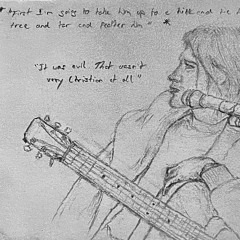 * "First I'm going to take him up to a hill and tie h
tree and tar and feather him" *
"It was evil That wasn't
very Christian at all"